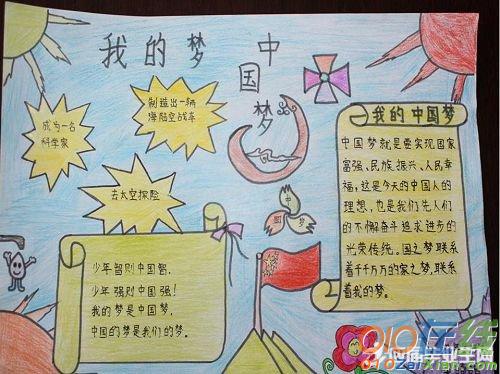 我的梦
中国梦
成为一名
科学家
制造出一辆
海陆空战车
去太空探险
我的中国梦
中国梦就是要实现国家
富强、民族振兴、人民幸
福，这是今天的中国人的
理想，也是我们先人们
的不懈奋斗追求进步的
光荣传统。国之梦联系
着千千万万的家之梦，联系
着我的梦。
中
国
梦
少年智则中国智，
少年强则中国强！
我的梦是中国梦，
中国的梦是我们的梦。